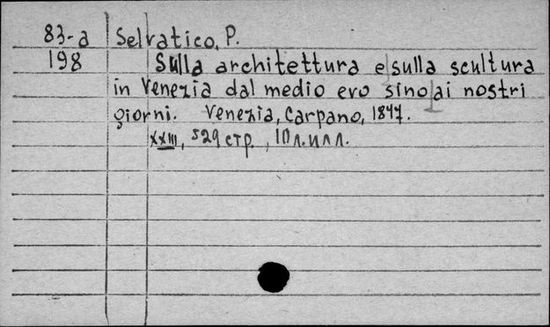 83-a Selvatico, P.
198 Sulla architettura e sulla scultura
in Venezia dal medio evo sino ai nostri
giorni. Venezia, Carpano, 1847.
XXIII, 529 стр., 10 л. илл.